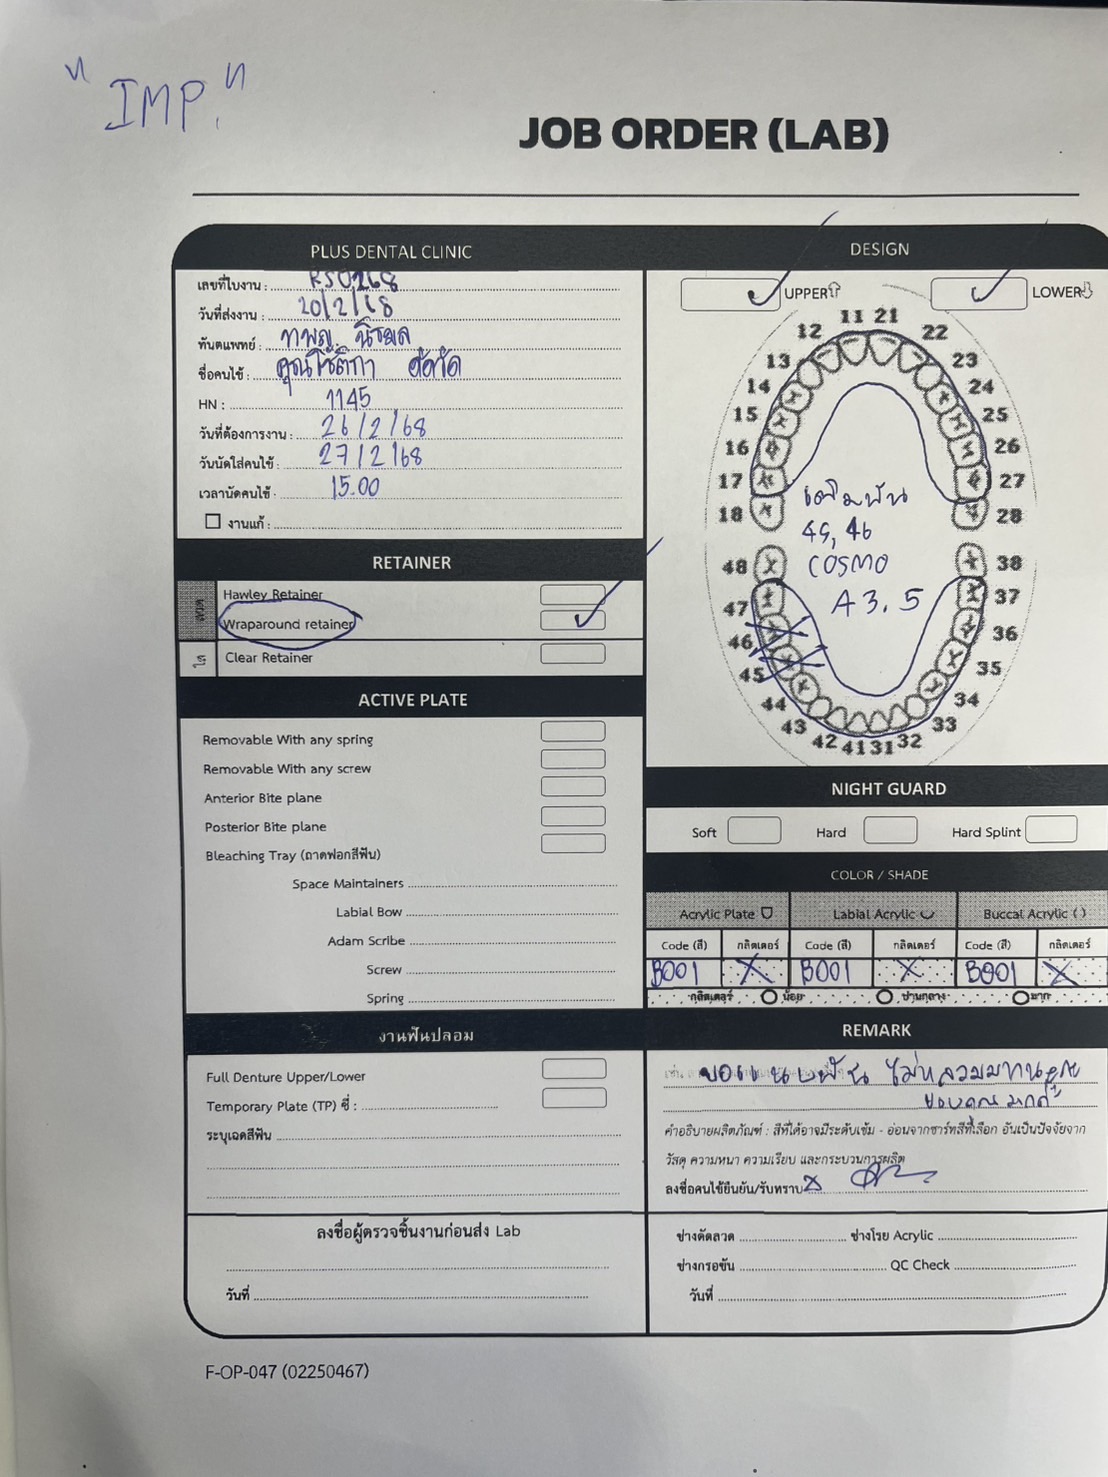 "IMP."
JOB ORDER (LAB)
PLUS DENTAL CLINIC
เลขที่ใบงาน : RS0268
วันที่ส่งงาน : 20/2/68
ทันตแพทย์ : ทพญ. นิรมล
ชื่อคนไข้ : คุณโชติกา
HN : 1145
วันที่ต้องการงาน : 26/2/68
วันนัดใส่คนไข้ : 27/2/68
เวลานัดคนไข้ : 15.00
งานแก้ :
RETAINER
ลวด
Hawley Retainer
Wraparound retainer
ใส
Clear Retainer
ACTIVE PLATE
Removable With any spring
Removable With any screw
Anterior Bite plane
Posterior Bite plane
Bleaching Tray (ถาดฟอกสีฟัน)
Space Maintainers
Labial Bow
Adam Scribe
Screw
Spring
งานฟันปลอม
Full Denture Upper/Lower
Temporary Plate (TP) ซี่ :
ระบุเฉดสีฟัน
ลงชื่อผู้ตรวจชิ้นงานก่อนส่ง Lab
วันที่
DESIGN
UPPER LOWER
11 21
12 22
13 23
14 24
15 25
16 26
17 27
18 28
48 38
47 37
46 36
45 35
44 34
43 33
42 41 31 32
เติมฟัน
45, 46
COSMO
A3.5
NIGHT GUARD
Soft Hard Hard Splint
COLOR / SHADE
Acrylic Plate Labial Acrylic Buccal Acrylic ( )
Code (สี) กลิตเตอร์ Code (สี) กลิตเตอร์ Code (สี) กลิตเตอร์
B001 X B001 X B001 X
กลิตเตอร์ น้อย ปานกลาง มาก
REMARK
เช่น ขอแนบฟัน ไม่หลวมมาก
คำอธิบายผลิตภัณฑ์ : สีที่ได้อาจมีระดับเข้ม - อ่อนจากชาร์ทสีที่เลือก อันเป็นปัจจัยจาก
วัสดุ ความหนา ความเรียบ และกระบวนการผลิต
ลงชื่อคนไข้ยืนยัน/รับทราบ X
ช่างดัดลวด ช่างโรย Acrylic
ช่างกรอขัน QC Check
วันที่
F-OP-047 (02250467)